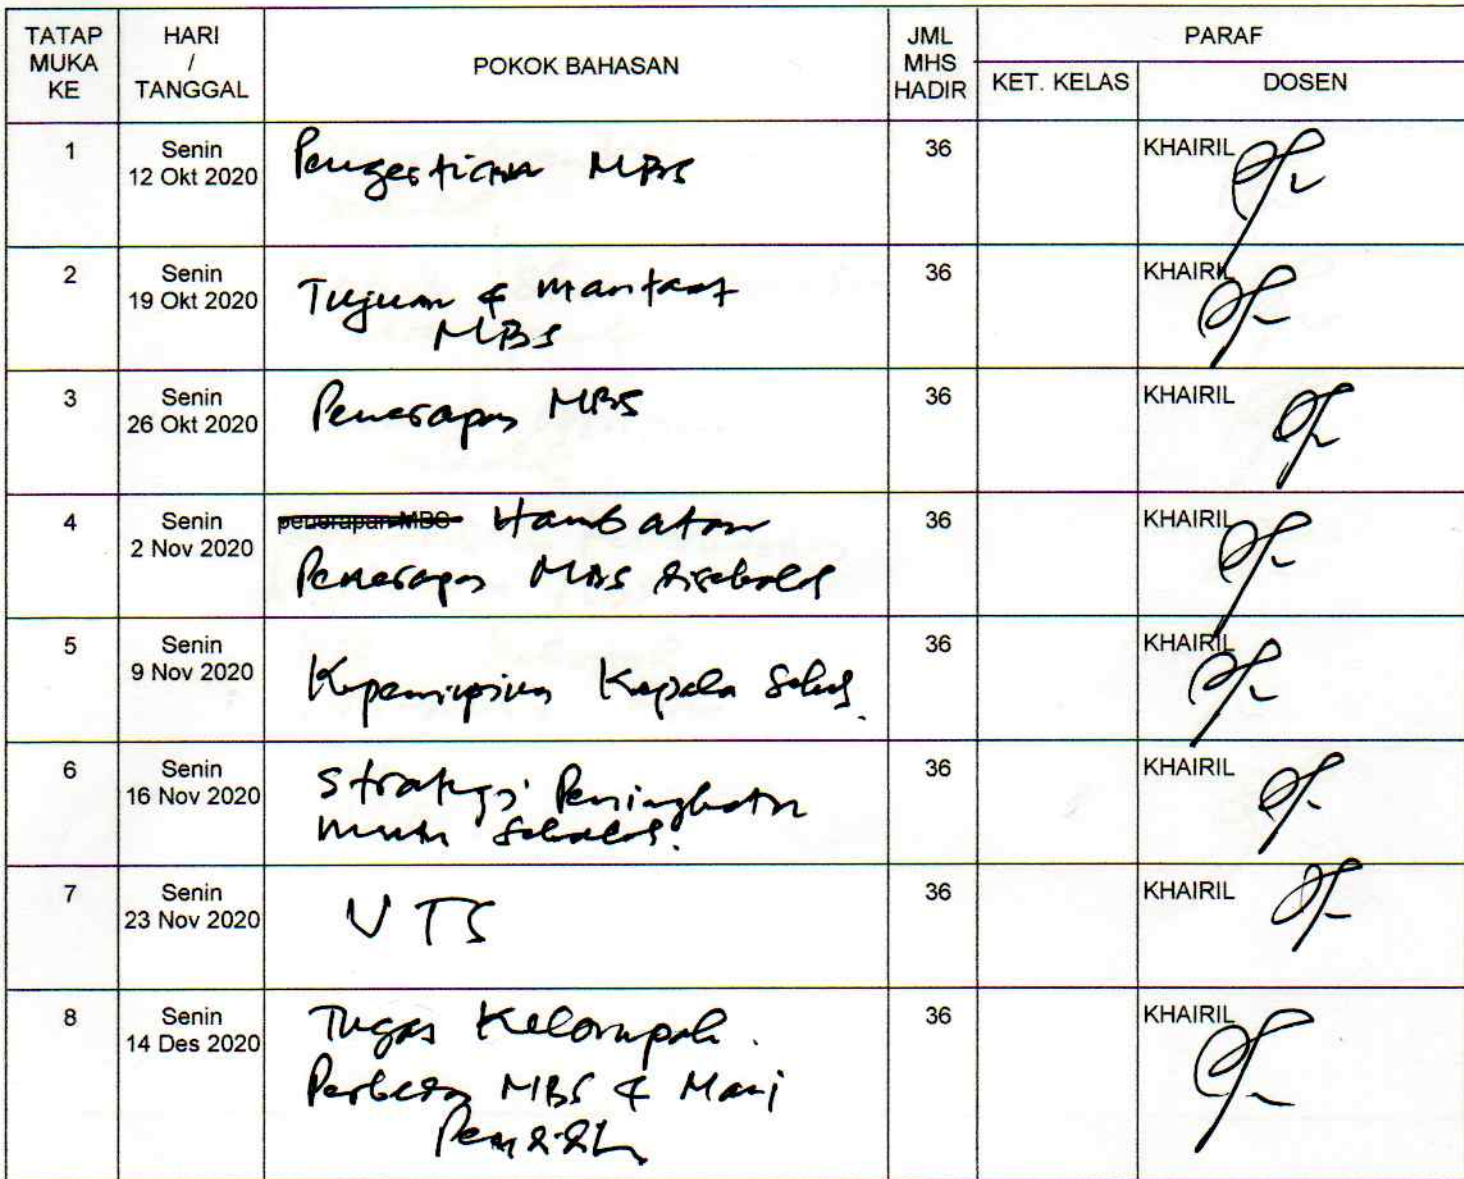 TATAP MUKA KE
HARI / TANGGAL
POKOK BAHASAN
JML MHS HADIR
PARAF
KET. KELAS
DOSEN
1
Senin
12 Okt 2020
Pengertian MBS
36
KHAIRIL
2
Senin
19 Okt 2020
Tujuan & Manfaat
MBS
36
KHAIRIL
3
Senin
26 Okt 2020
Penerapan MBS
36
KHAIRIL
4
Senin
2 Nov 2020
penerapan MBS Hambatan
Penerapan MBS disekolah
36
KHAIRIL
5
Senin
9 Nov 2020
Kepemimpinan Kepala Sekolah.
36
KHAIRIL
6
Senin
16 Nov 2020
Strategi Peningkatan
mutu Sekolah.
36
KHAIRIL
7
Senin
23 Nov 2020
UTS
36
KHAIRIL
8
Senin
14 Des 2020
Tugas Kelompok.
MBS & Manj
36
KHAIRIL